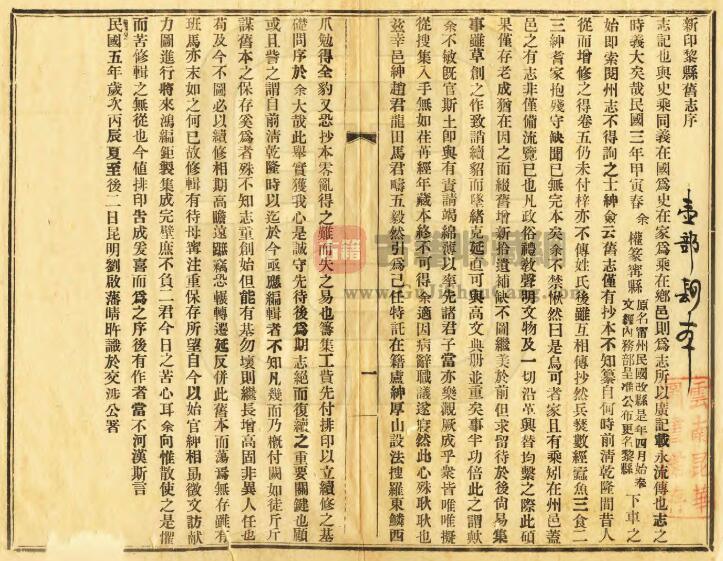 新印黎縣舊志序
志記也與史乘同義在國為史在家為乘在鄉邑則為志所以廣記載永流傳也志之
時義大矣哉民國三年甲寅春余權篆甯縣原名甯州民國改縣是年四月始奉文經內務部呈准公布更名黎縣下車之
始即索閱州志不得詢之士紳僉云舊志僅有抄本不知纂自何時前清乾隆間昔人
從而增修之得卷五仍未付梓亦不傳姓氏後雖互相傳抄然兵燹數經蠹魚三食二
三紳耆家抱殘守缺聞已無完本矣余不禁愀然曰是烏可者家且有乘矧在州邑蓋
邑之有志非僅備流覽已也凡政俗禮敎聲明文物及一切沿革興替均繫之際此碩
果僅存老成猶在因之而綴舊增新拾遺補缺不圖繼美於前但求留待於後尙易集
事雖草創之作致請續貂而墜緒克延直可與高文典册並重矣事半功倍此之謂歟
余不敏旣官斯土卽與有責請竭綿薄以先諸君子當亦樂觀厥成乎衆皆唯唯擬
從搜集入手無如荏苒經年藏本終不可得余適因病辭職議遂寢然此心殊耿耿也
茲幸邑紳趙君龍田馬君疇五毅然引為己任特託在籍盧紳厚山設法搜羅東鱗西
爪勉得全豹又恐抄本零亂得之雖而失之易也籌集工費先付排印以立續修之基
礎問序於余大哉此舉實獲我心是誠守先待後為期志絕而復續之重要關鍵也顧
或且訾之謂自前清乾隆時以迄於今亟應編輯者不知凡幾而乃槪付闕如徒斤斤
謀舊本之保存奚為者殊不知志重創始但能有基勿壞則繼長增高固非異人任也
苟及今不圖必以續修相期高瞻遠矚竊恐輾轉遷延反併此舊本而蕩焉無存雖有
班馬亦末如之何已故修輯有待毋寧注重保存所望自今以始官紳相勗徵文訪獻
力圖進行將來鴻編鉅製集成完璧庶不負二君今日之苦心耳余向惟散佚之是懼
而苦修輯之無從也今値排印吿成爰喜而為之序後有作者當不河漢斯言
民國五年歲次丙辰夏至後二日昆明劉啟藩晴昨識於交涉公署
一
古籍